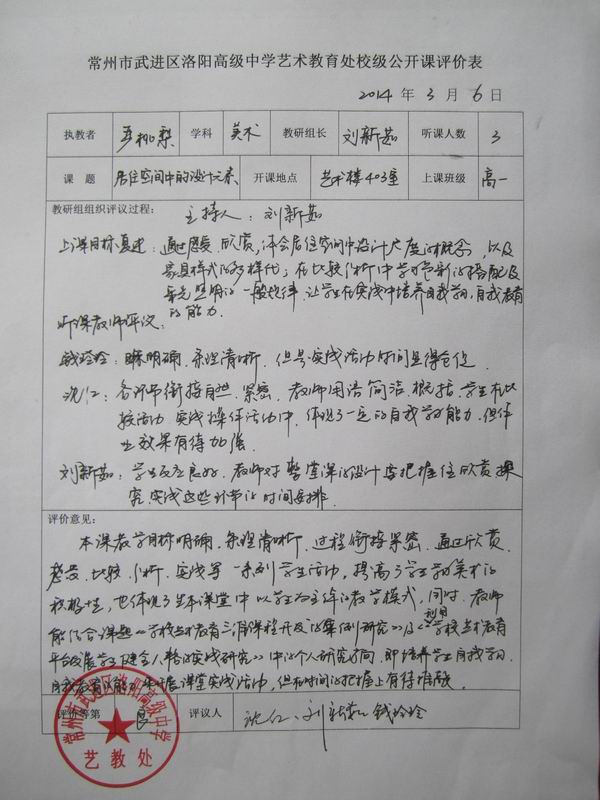 常州市武进区洛阳高级中学艺术教育处校级公开课评价表
2014 年 3 月 6 日
执教者 学科 美术 教研组长 刘新茹 听课人数 3
课 题 居住空间中的设计元素 开课地点 艺术楼403室 上课班级 高一
教研组组织评议过程: 主持人: 刘新茹
上课目标复述: 通过感受、欣赏,体会居住空间中设计尺度的概念,以及
家具样式的多样化;在比较分析中学习色彩的搭配及
采光照明的一般规律,让学生在实践中培养自我学习、自我教育
的能力.
听课教师评议:
钱玲玲: 明确,条理清晰,但是实践活动时间显得仓促.
沈红: 各环节衔接自然、紧密,教师用语简洁、概括,学生在比
较活动、实践操作活动中,体现了一定的自我学习能力,但作
业效果有待加强.
刘新茹: 学生反应良好,教师对整堂课的设计要把握住欣赏探
究、实践这些环节的时间安排.
评价意见:
本课教学目标明确,条理清晰,过程衔接紧密,通过欣赏、
感受、比较、分析、实践等一系列学生活动,提高了学生学习美术的
积极性,也体现了在本课堂中以学生为主体的教学模式,同时,教师
能结合课题《学校艺术教育三维课程开发的案例研究》及《利用学校艺术教育
平台发展学生健全人格的实践研究》中的个人研究方向,即培养学生自我学习、
自我教育的能力,开展课堂实践活动,但在时间的把握上有待推敲.
评价等第 良 评议人 沈红、刘新茹、钱玲玲
常州市武进区洛阳高级中学
艺教处